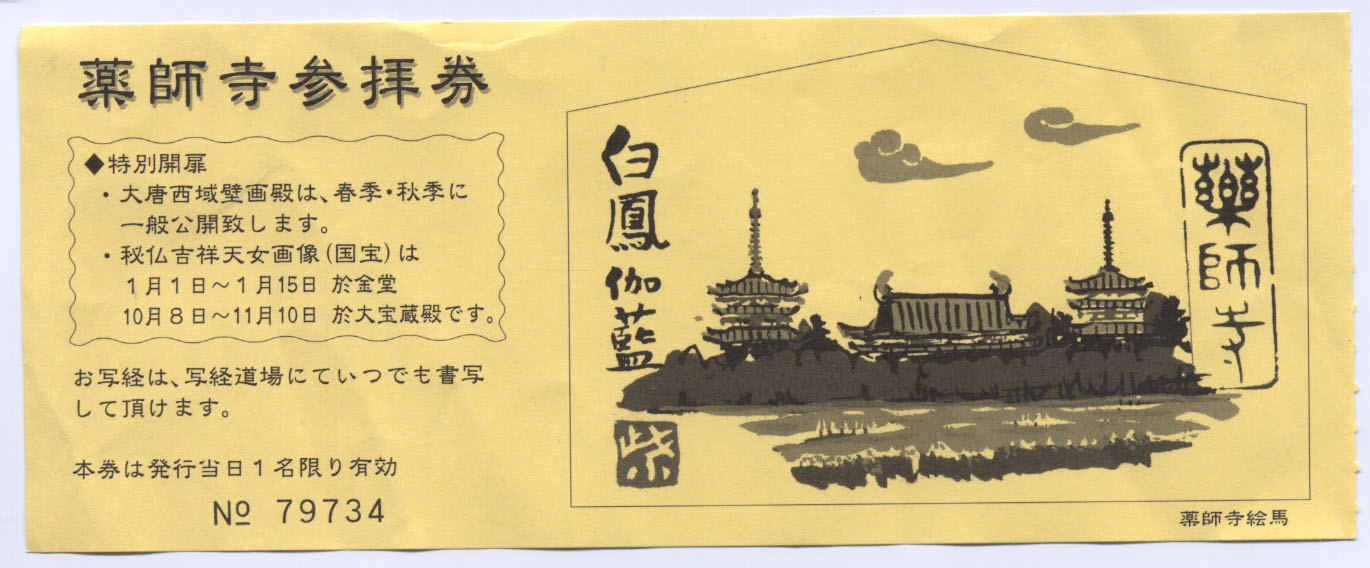 薬師寺参拝券
◆特別開扉
・大唐西域壁画殿は、春季・秋季に
一般公開致します。
・秘仏吉祥天女画像(国宝)は
1月1日～1月15日 於金堂
10月8日～11月10日 於大宝蔵殿です。
お写経は、写経道場にていつでも書写
して頂けます。
本券は発行当日1名限り有効
№ 79734
白鳳伽藍
柴
藥師寺
薬師寺絵馬